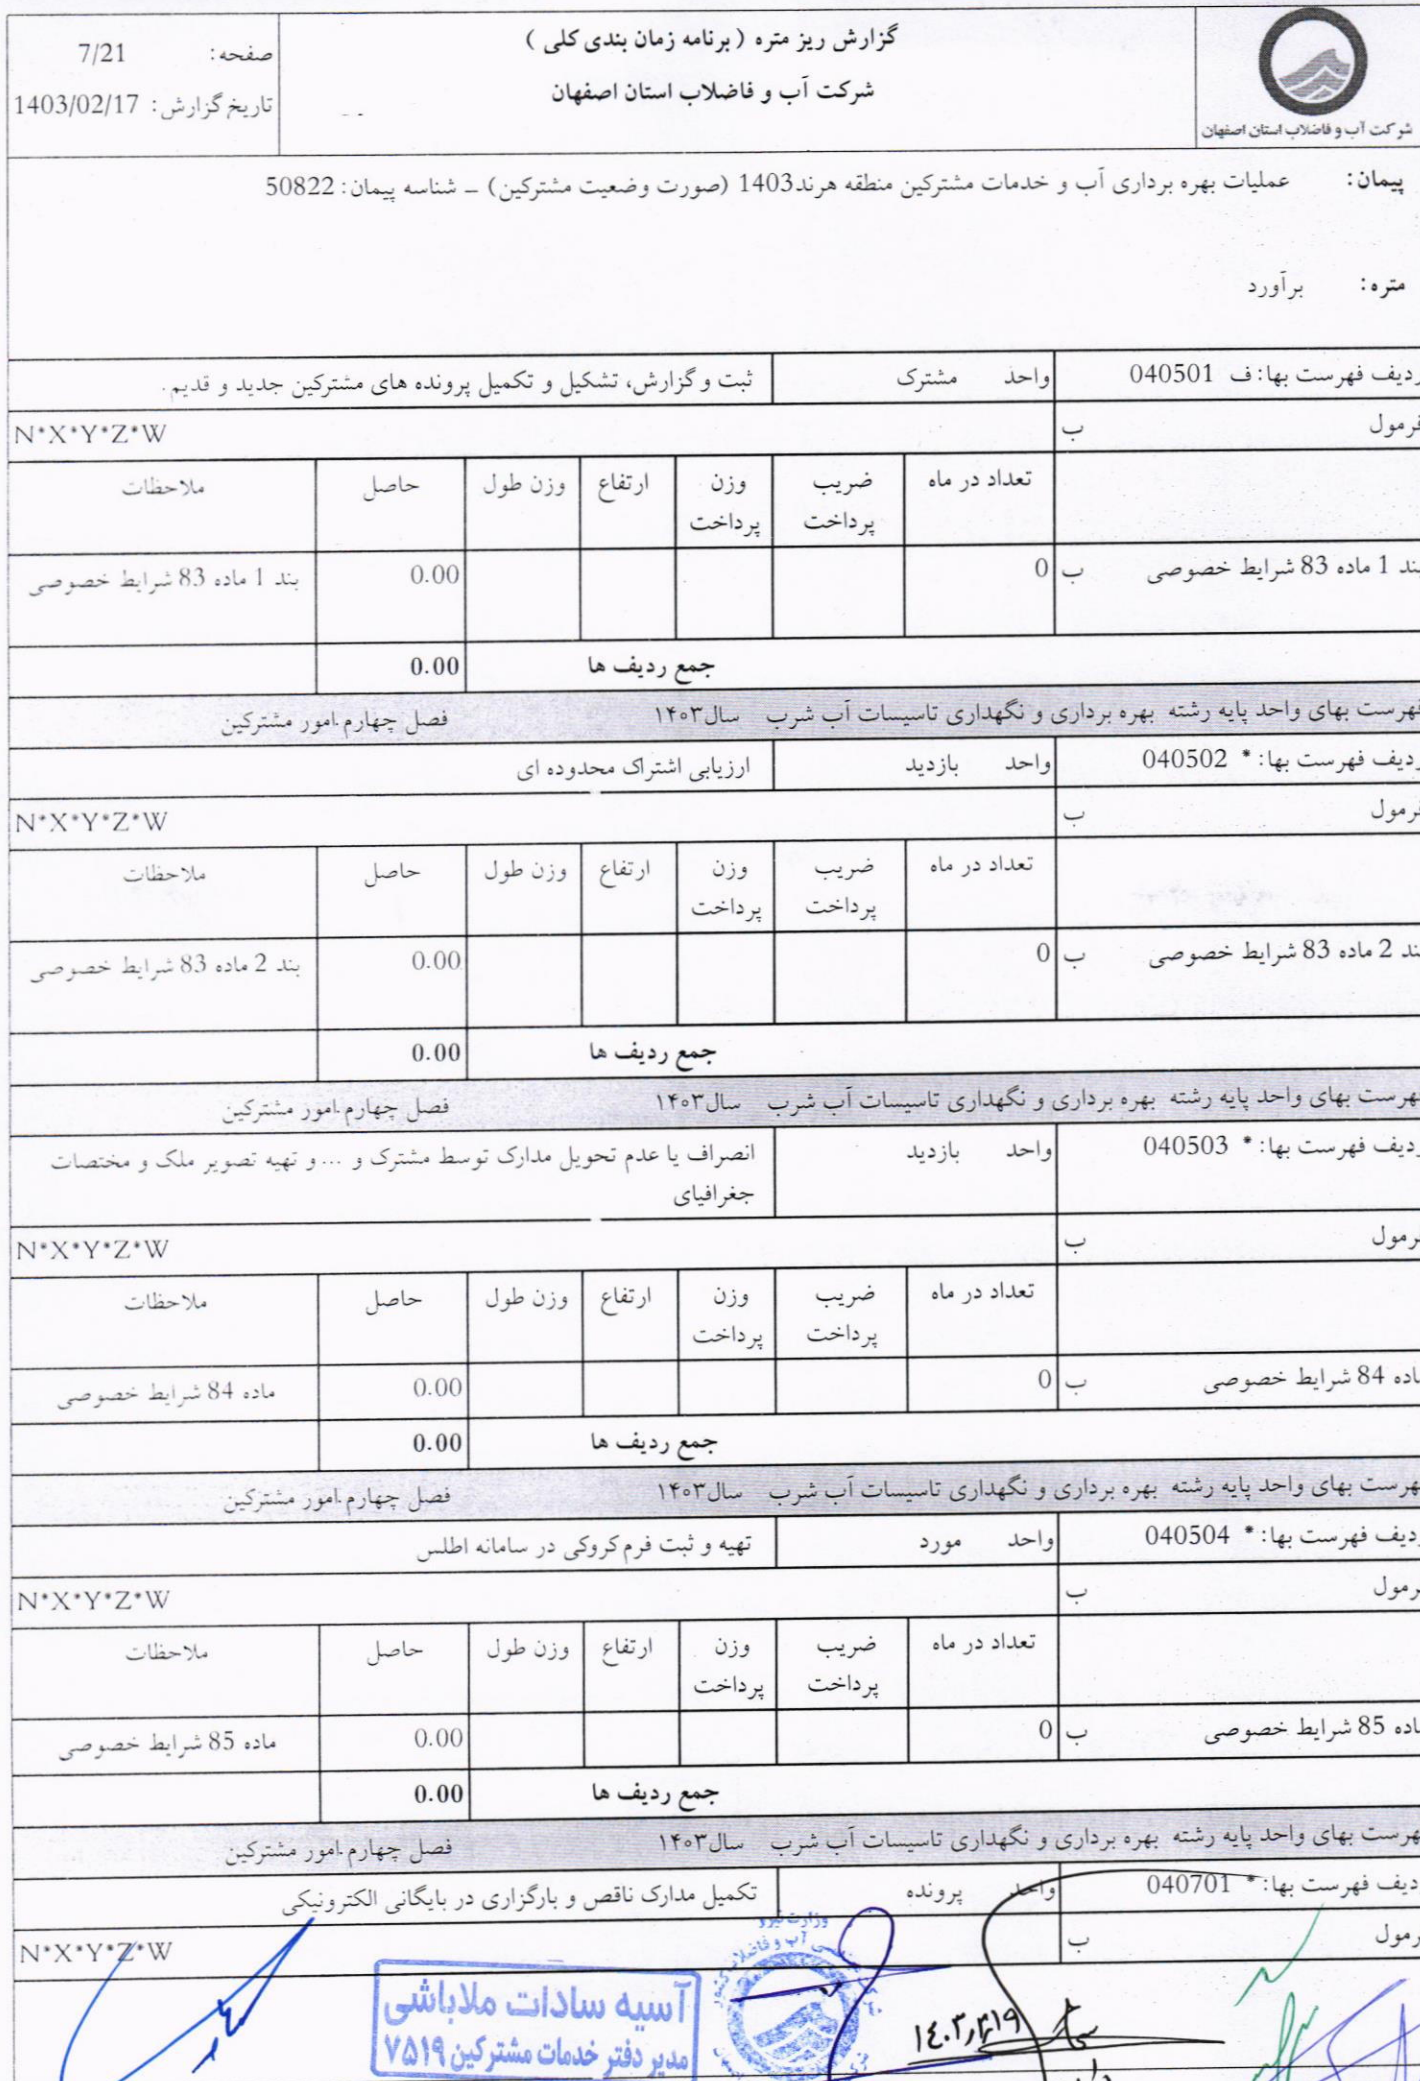 گزارش ریز متره ( برنامه زمان بندی کلی )
شرکت آب و فاضلاب استان اصفهان
صفحه: 7/21
تاریخ گزارش: 1403/02/17
شرکت آب و فاضلاب استان اصفهان
پیمان: عملیات بهره برداری آب و خدمات مشترکین منطقه هرند1403 (صورت وضعیت مشترکین) – شناسه پیمان: 50822
متره: برآورد
ردیف فهرست بها: ف 040501 واحد مشترک ثبت و گزارش، تشکیل و تکمیل پرونده های مشترکین جدید و قدیم.
فرمول ب N*X*Y*Z*W
تعداد در ماه ضریب پرداخت وزن پرداخت ارتفاع وزن طول حاصل ملاحظات
بند 1 ماده 83 شرایط خصوصی ب 0 0.00 بند 1 ماده 83 شرایط خصوصی
جمع ردیف ها 0.00
فهرست بهای واحد پایه رشته بهره برداری و نگهداری تاسیسات آب شرب سال۱۴۰۳ فصل چهارم.امور مشترکین
ردیف فهرست بها: * 040502 واحد بازدید ارزیابی اشتراک محدوده ای
فرمول ب N*X*Y*Z*W
تعداد در ماه ضریب پرداخت وزن پرداخت ارتفاع وزن طول حاصل ملاحظات
بند 2 ماده 83 شرایط خصوصی ب 0 0.00 بند 2 ماده 83 شرایط خصوصی
جمع ردیف ها 0.00
فهرست بهای واحد پایه رشته بهره برداری و نگهداری تاسیسات آب شرب سال۱۴۰۳ فصل چهارم.امور مشترکین
ردیف فهرست بها: * 040503 واحد بازدید انصراف یا عدم تحویل مدارک توسط مشترک و ... و تهیه تصویر ملک و مختصات
جغرافیای
فرمول ب N*X*Y*Z*W
تعداد در ماه ضریب پرداخت وزن پرداخت ارتفاع وزن طول حاصل ملاحظات
ماده 84 شرایط خصوصی ب 0 0.00 ماده 84 شرایط خصوصی
جمع ردیف ها 0.00
فهرست بهای واحد پایه رشته بهره برداری و نگهداری تاسیسات آب شرب سال۱۴۰۳ فصل چهارم.امور مشترکین
ردیف فهرست بها: * 040504 واحد مورد تهیه و ثبت فرم کروکی در سامانه اطلس
فرمول ب N*X*Y*Z*W
تعداد در ماه ضریب پرداخت وزن پرداخت ارتفاع وزن طول حاصل ملاحظات
ماده 85 شرایط خصوصی ب 0 0.00 ماده 85 شرایط خصوصی
جمع ردیف ها 0.00
فهرست بهای واحد پایه رشته بهره برداری و نگهداری تاسیسات آب شرب سال۱۴۰۳ فصل چهارم.امور مشترکین
ردیف فهرست بها: * 040701 واحد پرونده تکمیل مدارک ناقص و بارگزاری در بایگانی الکترونیکی
فرمول ب N*X*Y*Z*W
وزارت نیرو
آسیه سادات ملاباشی
مدیر دفتر خدمات مشترکین ۷۵۱۹